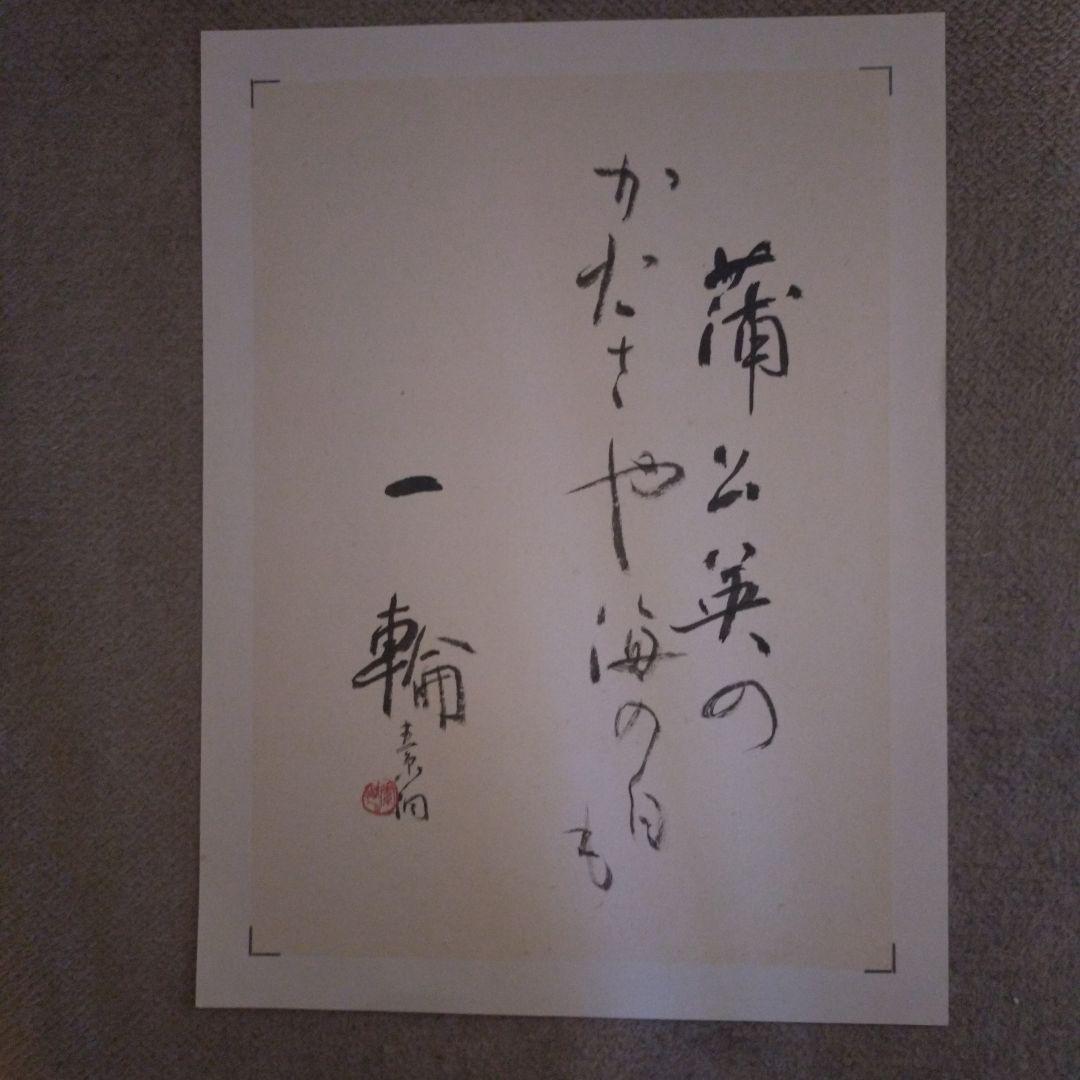 蒲公英の
かたさや海の日も
一輪